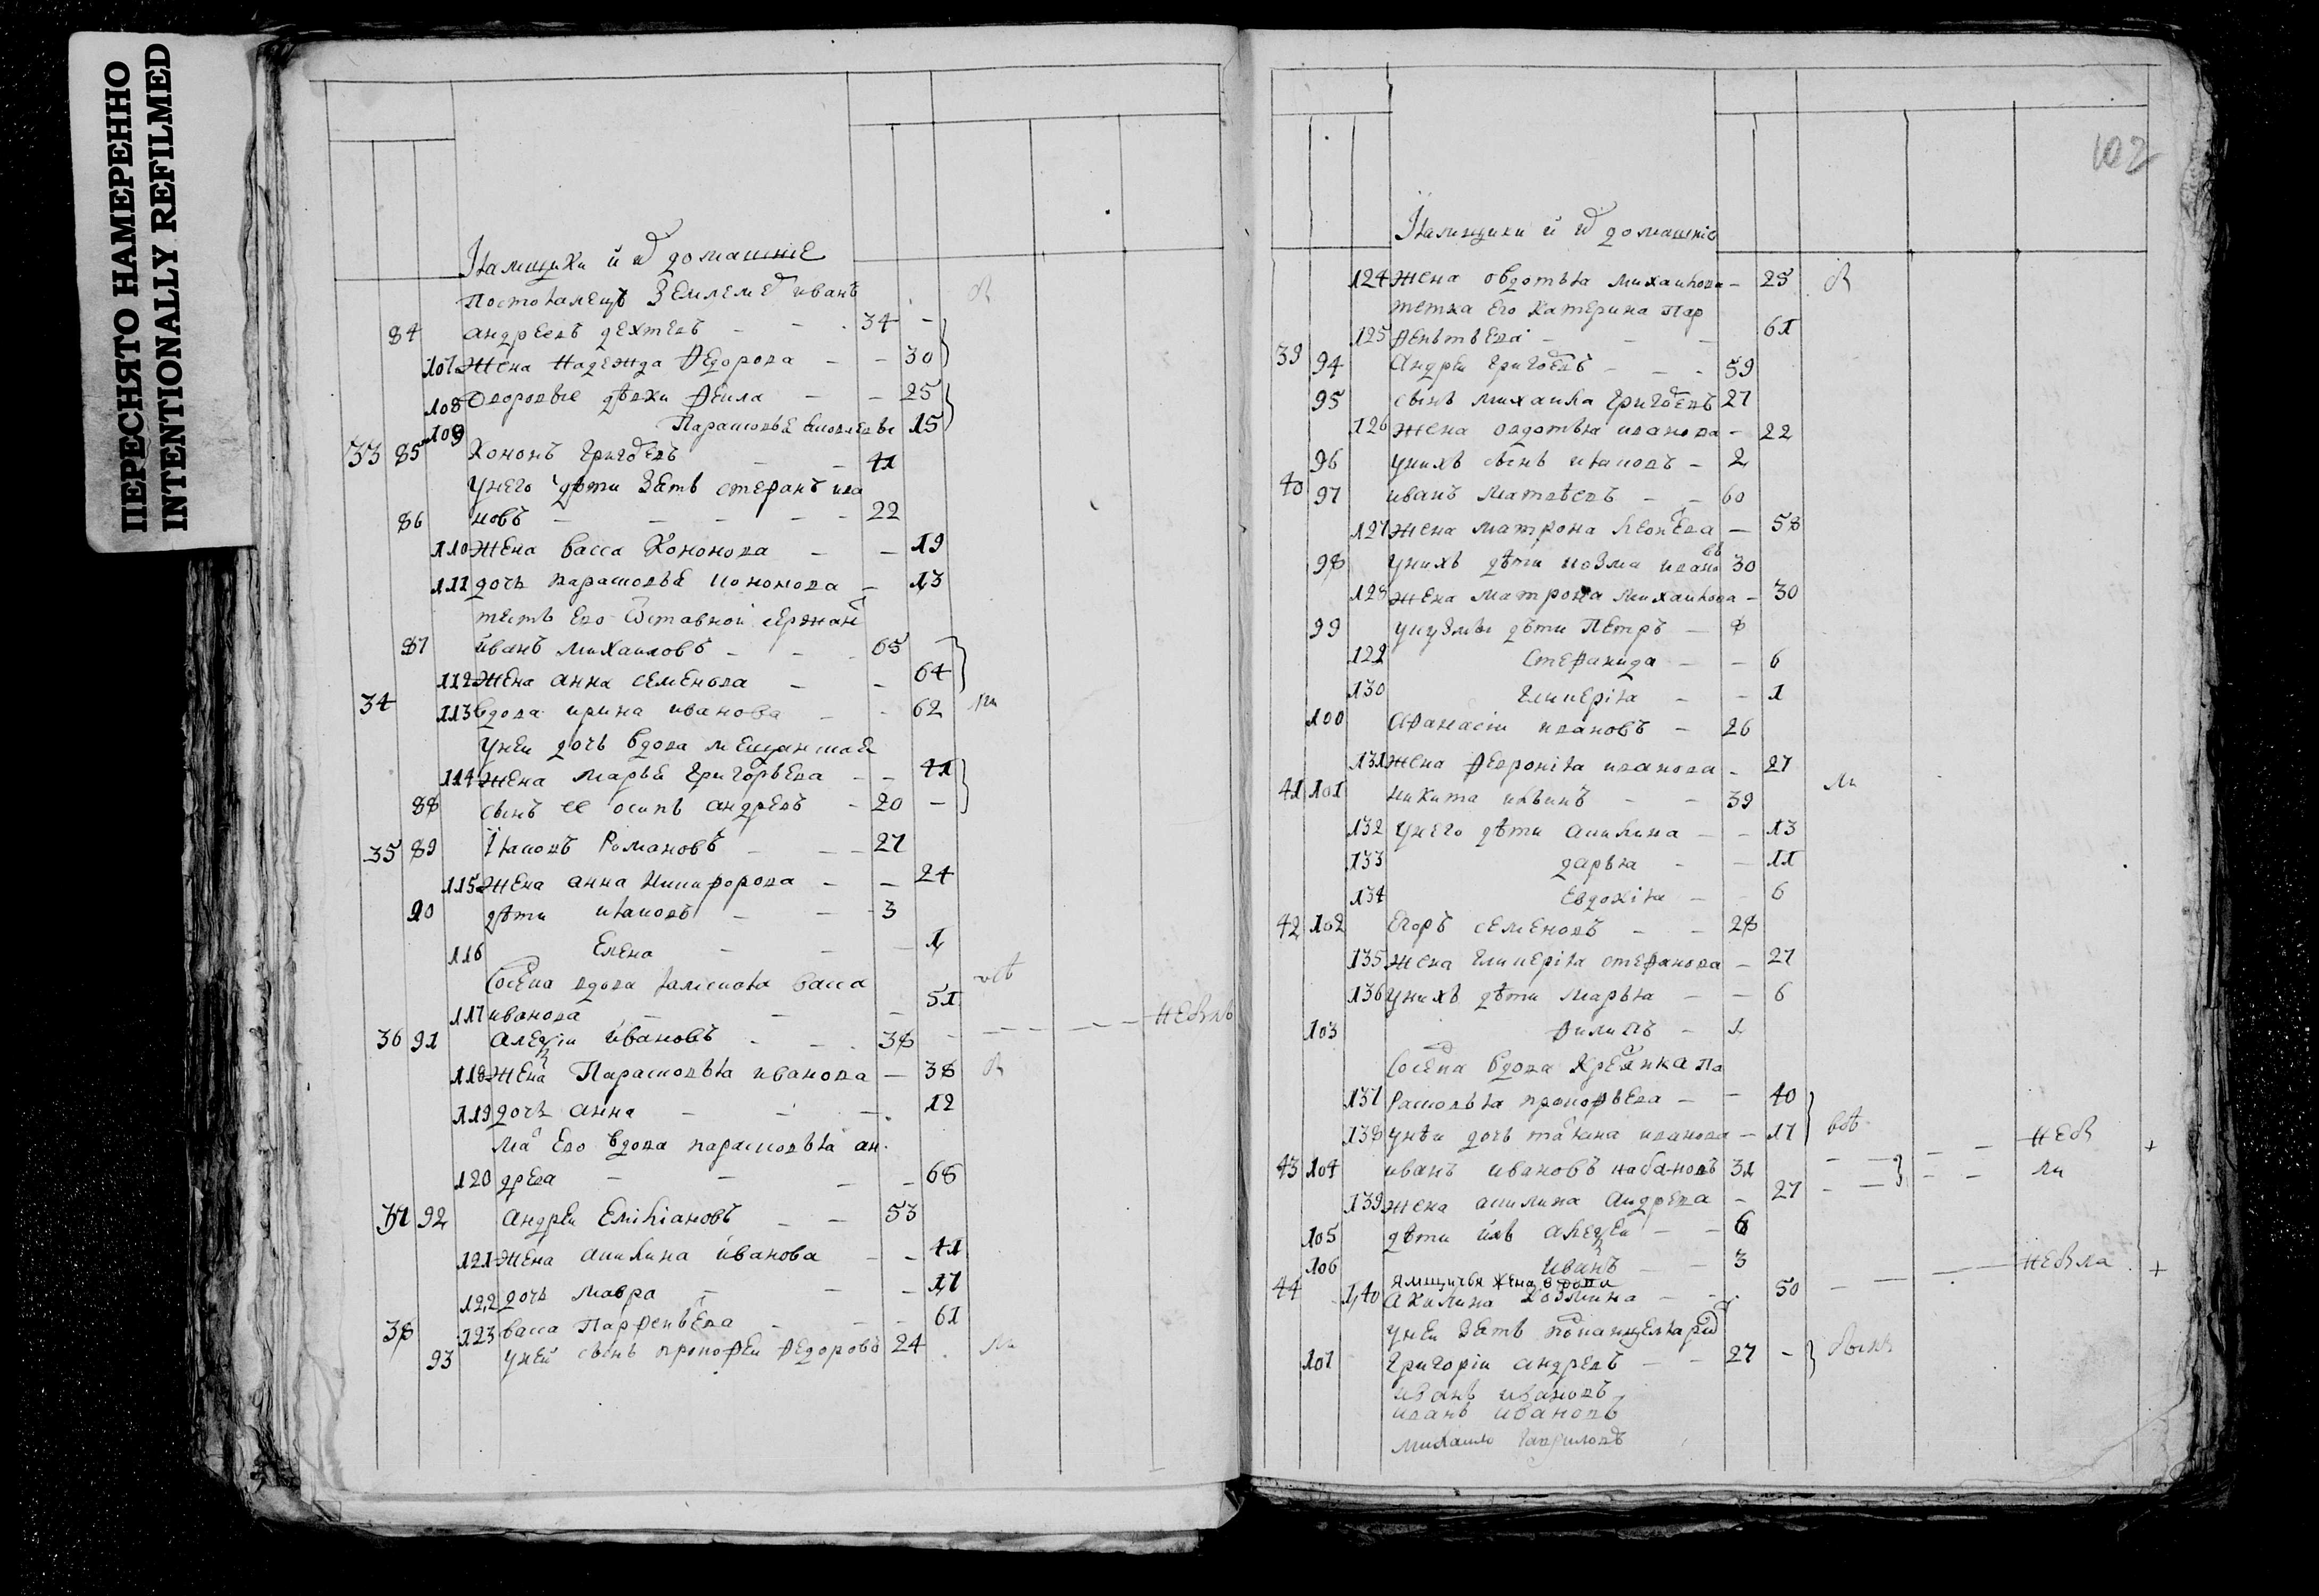 ПЕРЕСНЯТО НАМЕРЕННО
INTENTIONALLY REFILMED
Ямщики и и домашние
Постоялецъ Землеме иванъ
84 андреевъ дехтевъ - - 34 -
107 Жена Надежда Федорова - - 30
108 Дворовые дѣвки - - 25
109 Парасковья 15
33 85 Кононъ Григоевъ - - 41
Унего дѣти Зять стефанъ ива
86 новъ - - - - - 22
110 Жена васса Кононова - - 19
111 дочь парасковья Кононова - 13
тесть Ево Отставной сержан
87 иванъ Михаиловъ - - - 65 -
112 Жена анна семенова - - 64
34 113 вдова ирина иванова - - 62 ли
Унеи дочь вдова мещанская
114 Жена Марья Григорьева - - 41
88 сынъ ее осипъ андревъ - 20 -
35 89 Яковъ Романовъ - - - 27
115 Жена анна Никифорова - - 24
90 дѣти яковъ - - - 3
116 Елена - - - 1
Сосѣда вдова васса
117 иванова - - - 51
36 91 Алеѯѣи ивановъ - - - 38 - - - - -
118 Жена Парасковья иванова - 38
119 дочь анна - - - 12
Ма Ево вдова парасковья ан
120 древа - - - - 68
37 92 андреи Емилиановъ - - 53
121 Жена акилина иванова - - 41
122 дочь Мавра - - - 17
38 123 васса Парфеньева - - - 61
93 Унеи сынъ прокофеи Федоровъ 24 ли
102
Ямщики и и домашние
124 Жена овдотья михаилова - 25
тетка Его Катерина Пар
125 феньтьева - - - 61
39 94 Андреи григоевъ - - - 59
95 сынъ михаила григоевъ 27
126 Жена овдотья иванова - 22
96 унихъ сынъ яковъ - 2
40 97 иванъ матвѣевъ - - 60
127 Жена матрона леонева - 58
98 Унихъ дѣти козма ивано въ 30
128 Жена матрона михаилова - 30
99 укузмы дѣти Петръ - 8
122 Стефанида - - 6
130 Гликерія - - 1
100 Афанасіи ивановъ - 26
131 Жена Февронія иванова - 27
41 101 никита ильинъ - - 39 ли
132 Унего дѣти акилина - - 13
133 дарья - - 11
134 Евдокія - - 6
42 102 Егоръ семеновъ - - 28
135 Жена Гликерія стефанова - 27
136 унихъ дѣти марья - - 6
103 филипъ - 1
Сосѣда вдова Крея нка па
137 расковья прокофьева - - 40
138 унѣи дочь таяна иванова - 17
43 104 иванъ ивановъ кабановъ 31 - - - - ли
139 Жена акилина андрева - 27 - -
105 дѣти ихъ алеѯѣи - - 6
106 иванъ - - 3
44 Ямщичья жена вдова
140 Акилина Козмина - - 50 - - - - +
унеи зять
107 Григоріи андревъ - - 27 -
иванъ ивановъ
иванъ ивановъ
михаило гавриловъ